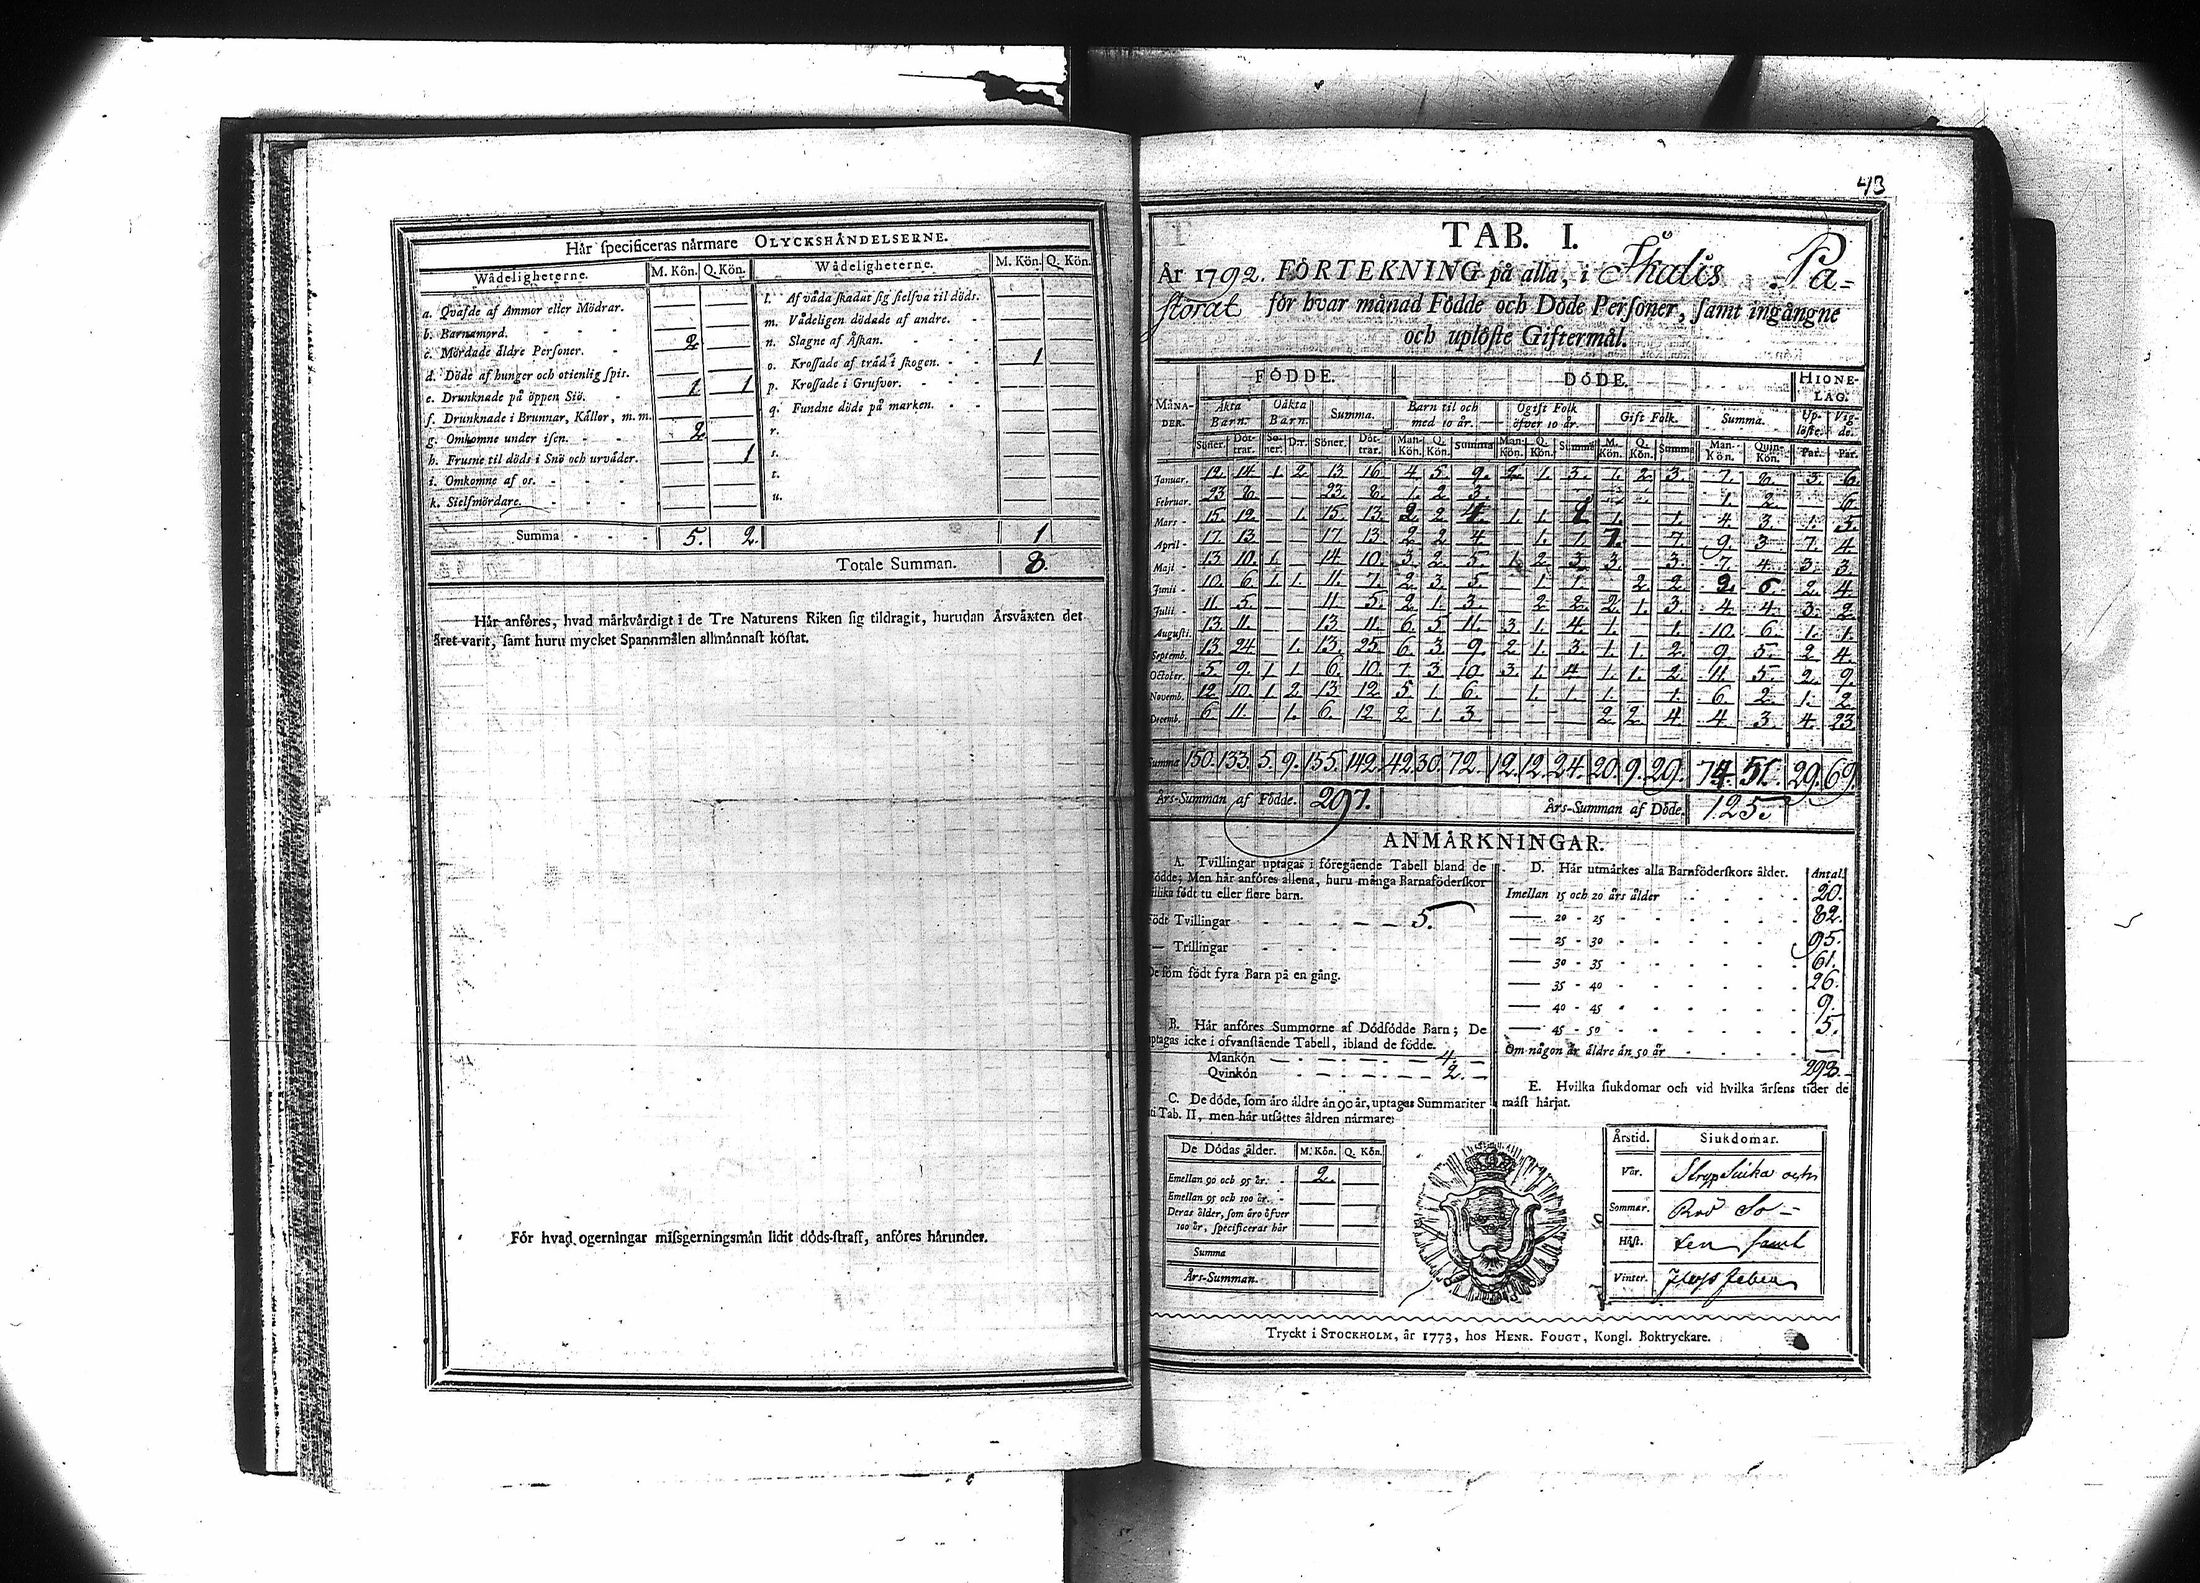 Hår specificeras nårmare OLYCKSHÅNDELSERNE.
Wådeligheterne. M. Kön. Q. Kön. Wådeligheterne. M. Kön. Q. Kön.
a. Qvafde af Ammor eller Mödrar.
b. Barnamord.
c. Mördade äldre Personer. 2
d. Döde af hunger och otienlig spis.
e. Drunknade på öppen Siö. 1 1
f. Drunknade i Brunnar, Källor, m. m.
g. Omkomne under isen. 2
h. Frusne til döds i Snö och urväder. 1
i. Omkomne af os.
k. Sielfmördare.
l. Af våda skadat sig sielfva til döds.
m. Vådeligen dödade af andre.
n. Slagne af Åskan.
o. Krossade af träd i skogen. 1
p. Krossade i Grufvor.
q. Fundne döde på marken.
r.
s.
t.
u.
Summa 5. 2. 1
Totale Summan. 8.
Hår anföres, hvad mårkvårdigt i de Tre Naturens Riken sig tildragit, hurudan Årsväxten det
året varit, samt huru mycket Spannmålen allmånnast kostat.
För hvad ogerningar missgerningsmån lidit döds-straff, anföres hårunder.
43
TAB. I.
År 1792. FÖRTEKNING på alla, i Skalis Pa=
storat för hvar månad Födde och Döde Personer, samt ingångne
och uplöste Giftermål.
FÖDDE. DÖDE. HIONE-
LAG.
MÅNA-
DER. Äkta
Barn. Oäkta
Barn. Summa. Barn til och
med 10 år. Ogift Folk
öfver 10 år. Gift Folk. Summa. Up-
löste. Vig-
de.
Söner. Döt-
trar. Sö-
ner. D:r. Söner. Döt-
trar. Man-
Kön. Q.
Kön. Summa Man-
Kön. Q.
Kön. Summa M.
Kön. Q.
Kön. Summa Man-
Kön. Quin-
Kön. Par. Par.
Januar. 12. 14. 1. 2. 13 16. 4. 5. 9. 2. 1. 3. 1. 2. 3. 7. 8. 3. 6.
Februar. 23 8. — — 23. 8. 1. 2 3. — — — — — — 1. 2. — 6
Mars 15. 12. — 1. 15. 13. 2. 2 4. 1. 1. 2 1. — 1. 4 3. 1. 5.
April 17. 13 — — 17 13 2 2 4 — 1. 1. 7. — 7. 9. 3 7. 4.
Maji 13 10. 1. — 14. 10. 3 2. 5. 1. 2. 3 3. — 3. 7. 4. 3. 3.
Junii 10. 6 1. 1. 11. 7. 2 3. 5. — 1. 1. — 2. 2. 2. 6. 2. 4.
Julii 11. 5. — — 11. 5. 2 1. 3. — 2 2. 2 1. 3. 4 4. 3. 2
Augusti. 13 11. — — 13 11. 6 5 11. 3 1. 4. 1. — 1. 10. 6. 1. 1.
Septemb. 13. 24. — 1. 13. 25. 6 3. 9. 2 1. 3. 1. 1. 2. 9. 5. 2 4.
October. 5 9. 1 1. 6. 10. 7. 3 10. 3. 1. 4 1. 1. 2. 11. 5. 2. 9.
Novemb. 12 10. 1 2. 13 12. 5 1. 6. — 1. 1. 1. — 1. 6. 2. 1. 2
Decemb. 6 11. — 1. 6. 12 2. 1. 3 — — — 2 2. 4. 4 3. 4. 23
Summa 150. 133. 5. 9. 155. 142. 42. 30. 72. 12. 12. 24. 20. 9. 29. 74. 51. 29. 69.
Års-Summan af Födde. 297. Års-Summan af Döde. 125.
ANMÅRKNINGAR.
A. Tvillingar uptagas i föregående Tabell bland de
födde; Men hår anföres allena, huru många Barnaföderskor
hvilka födt tu eller flere barn.
Födt Tvillingar 5.
— Trillingar
De som födt fyra Barn på en gång.
B. Hår anföres Summorne af Dödfödde Barn; De
uptagas icke i ofvanstående Tabell, ibland de födde.
Mankön 4.
Qvinkön 2.
C. De döde, som åro äldre än 90 år, uptagas Summariter
uti Tab. II, men hår utsåttes åldren nårmare:
De Dödas ålder. M. Kön. Q. Kön.
Emellan 90 och 95 år. 2.
Emellan 95 och 100 år.
Deras ålder, som äro öfver
100 år, specificeras här
Summa
Års-Summan.
D. Hår utmärkes alla Barnföderskors ålder. Antal.
Imellan 15 och 20 års ålder 20.
— 20 - 25 82.
— 25 - 30 95.
— 30 - 35 61.
— 35 - 40 26.
— 40 - 45 9.
— 45 - 50 5.
Om någon är äldre än 50 år —
292.
E. Hvilka siukdomar och vid hvilka årsens tider de
måst hårjat.
Årstid. Siukdomar.
Vår. Strypsiuka och
Sommar. Röd So-
Höst. ten samt
Vinter. feber
Tryckt i STOCKHOLM, år 1773, hos HENR. FOUGT, Kongl. Boktryckare.